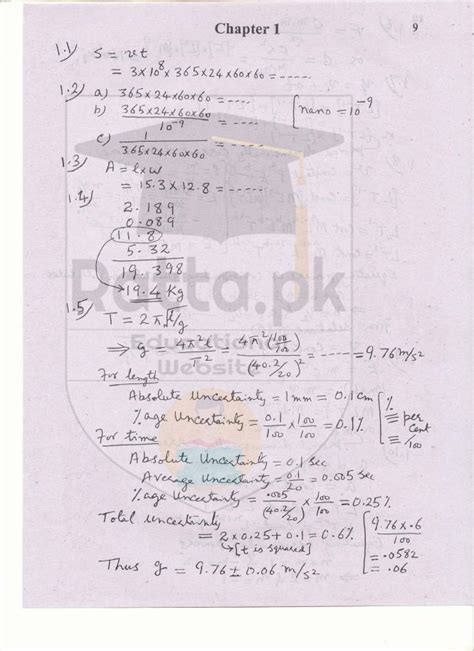 Chapter 1
9
1.1) S = vt
= 3×10⁸×365×24×60×60 = -----
1.2) a) 365×24×60×60 = -----
b) 365×24×60×60 / 10⁻⁹ = ----- [nano = 10⁻⁹
c) 1 / 365×24×60×60
1.3) A = l×w
= 15.3×12.8 = -----
1.4)
2.189
0.089
11.8
5.32
19.398
19.4 Kg
1.5) T = 2π√l/g
⇒ g = 4π²l / T² = 4π²(100/100) / (40.2/20)² = ----- = 9.76 m/s²
For length
Absolute Uncertainty = 1mm = 0.1 cm
%age Uncertainty = 0.1/100 × 100/100 = 0.1% [% ≡ per cent ≡ /100
For time
Absolute Uncertainty = 0.1 sec
Average Uncertainty = 0.1/20 = 0.005 sec
%age Uncertainty = .005/(40.2/20) × 100/100 = 0.25%
Total uncertainty
= 2×0.25+0.1 = 0.6% [9.76×.6 / 100
↳[t is squared] = .0582
= .06
Thus g = 9.76 ± 0.06 m/s²
Ratta.pk
Educational
Website